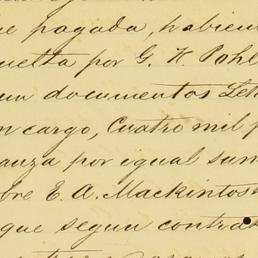 e pagada, habien
uelta por G. H. Pohl
un documentos Let
n cargo, Cuatro mil p
anza por igual sum
bre E. A. Mackintosh
que segun contra